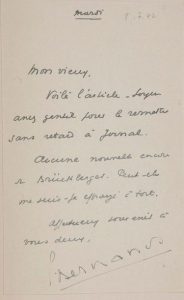 mardi
Mon vieux,
Voilà l'article - Soyez
assez gentil pour le remettre
sans retard à Jornal.
Aucune nouvelle encore
de Brückberger. Peut-être
me suis-je effrayé à tort.
Affectueux souvenir à
vous deux,
Bernanos